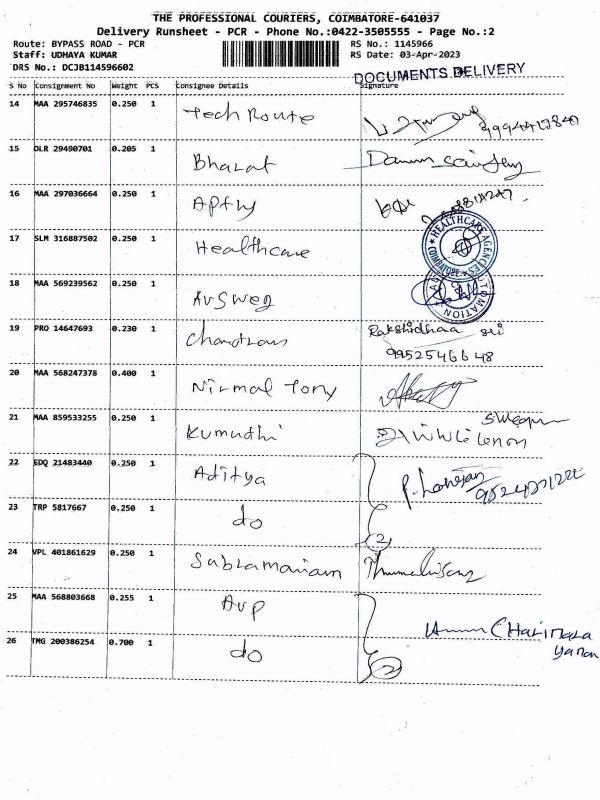 THE PROFESSIONAL COURIERS, COIMBATORE-641037
Delivery Runsheet - PCR - Phone No.:0422-3505555 - Page No.:2
Route: BYPASS ROAD - PCR RS No.: 1145966
Staff: UDHAYA KUMAR RS Date: 03-Apr-2023
DRS No.: DCJB114596602 DOCUMENTS DELIVERY
S No Consignment No Weight PCS Consignee Details Signature
14 MAA 295746835 0.250 1 Tech Route
15 DLR 29490701 0.205 1 Bharat
16 MAA 297036664 0.250 1 Aptly
17 SLM 316887502 0.250 1 Healthcare HEALTHCARE AGENCIES COIMBATORE
18 MAA 569239562 0.250 1 AUTOMATION
19 PRO 14647693 0.230 1 Rakshidhaa Sri
9952546648
20 MAA 568247378 0.400 1 Nirmal Tony
21 MAA 859533255 0.250 1 Kumudhi
22 EDQ 21483440 0.250 1 Aditya
23 TRP 5817667 0.250 1 do 2
24 VPL 401861629 0.250 1 Subramaniam
25 MAA 568803668 0.255 1 Avp
26 TMG 200386254 0.700 1 do 2